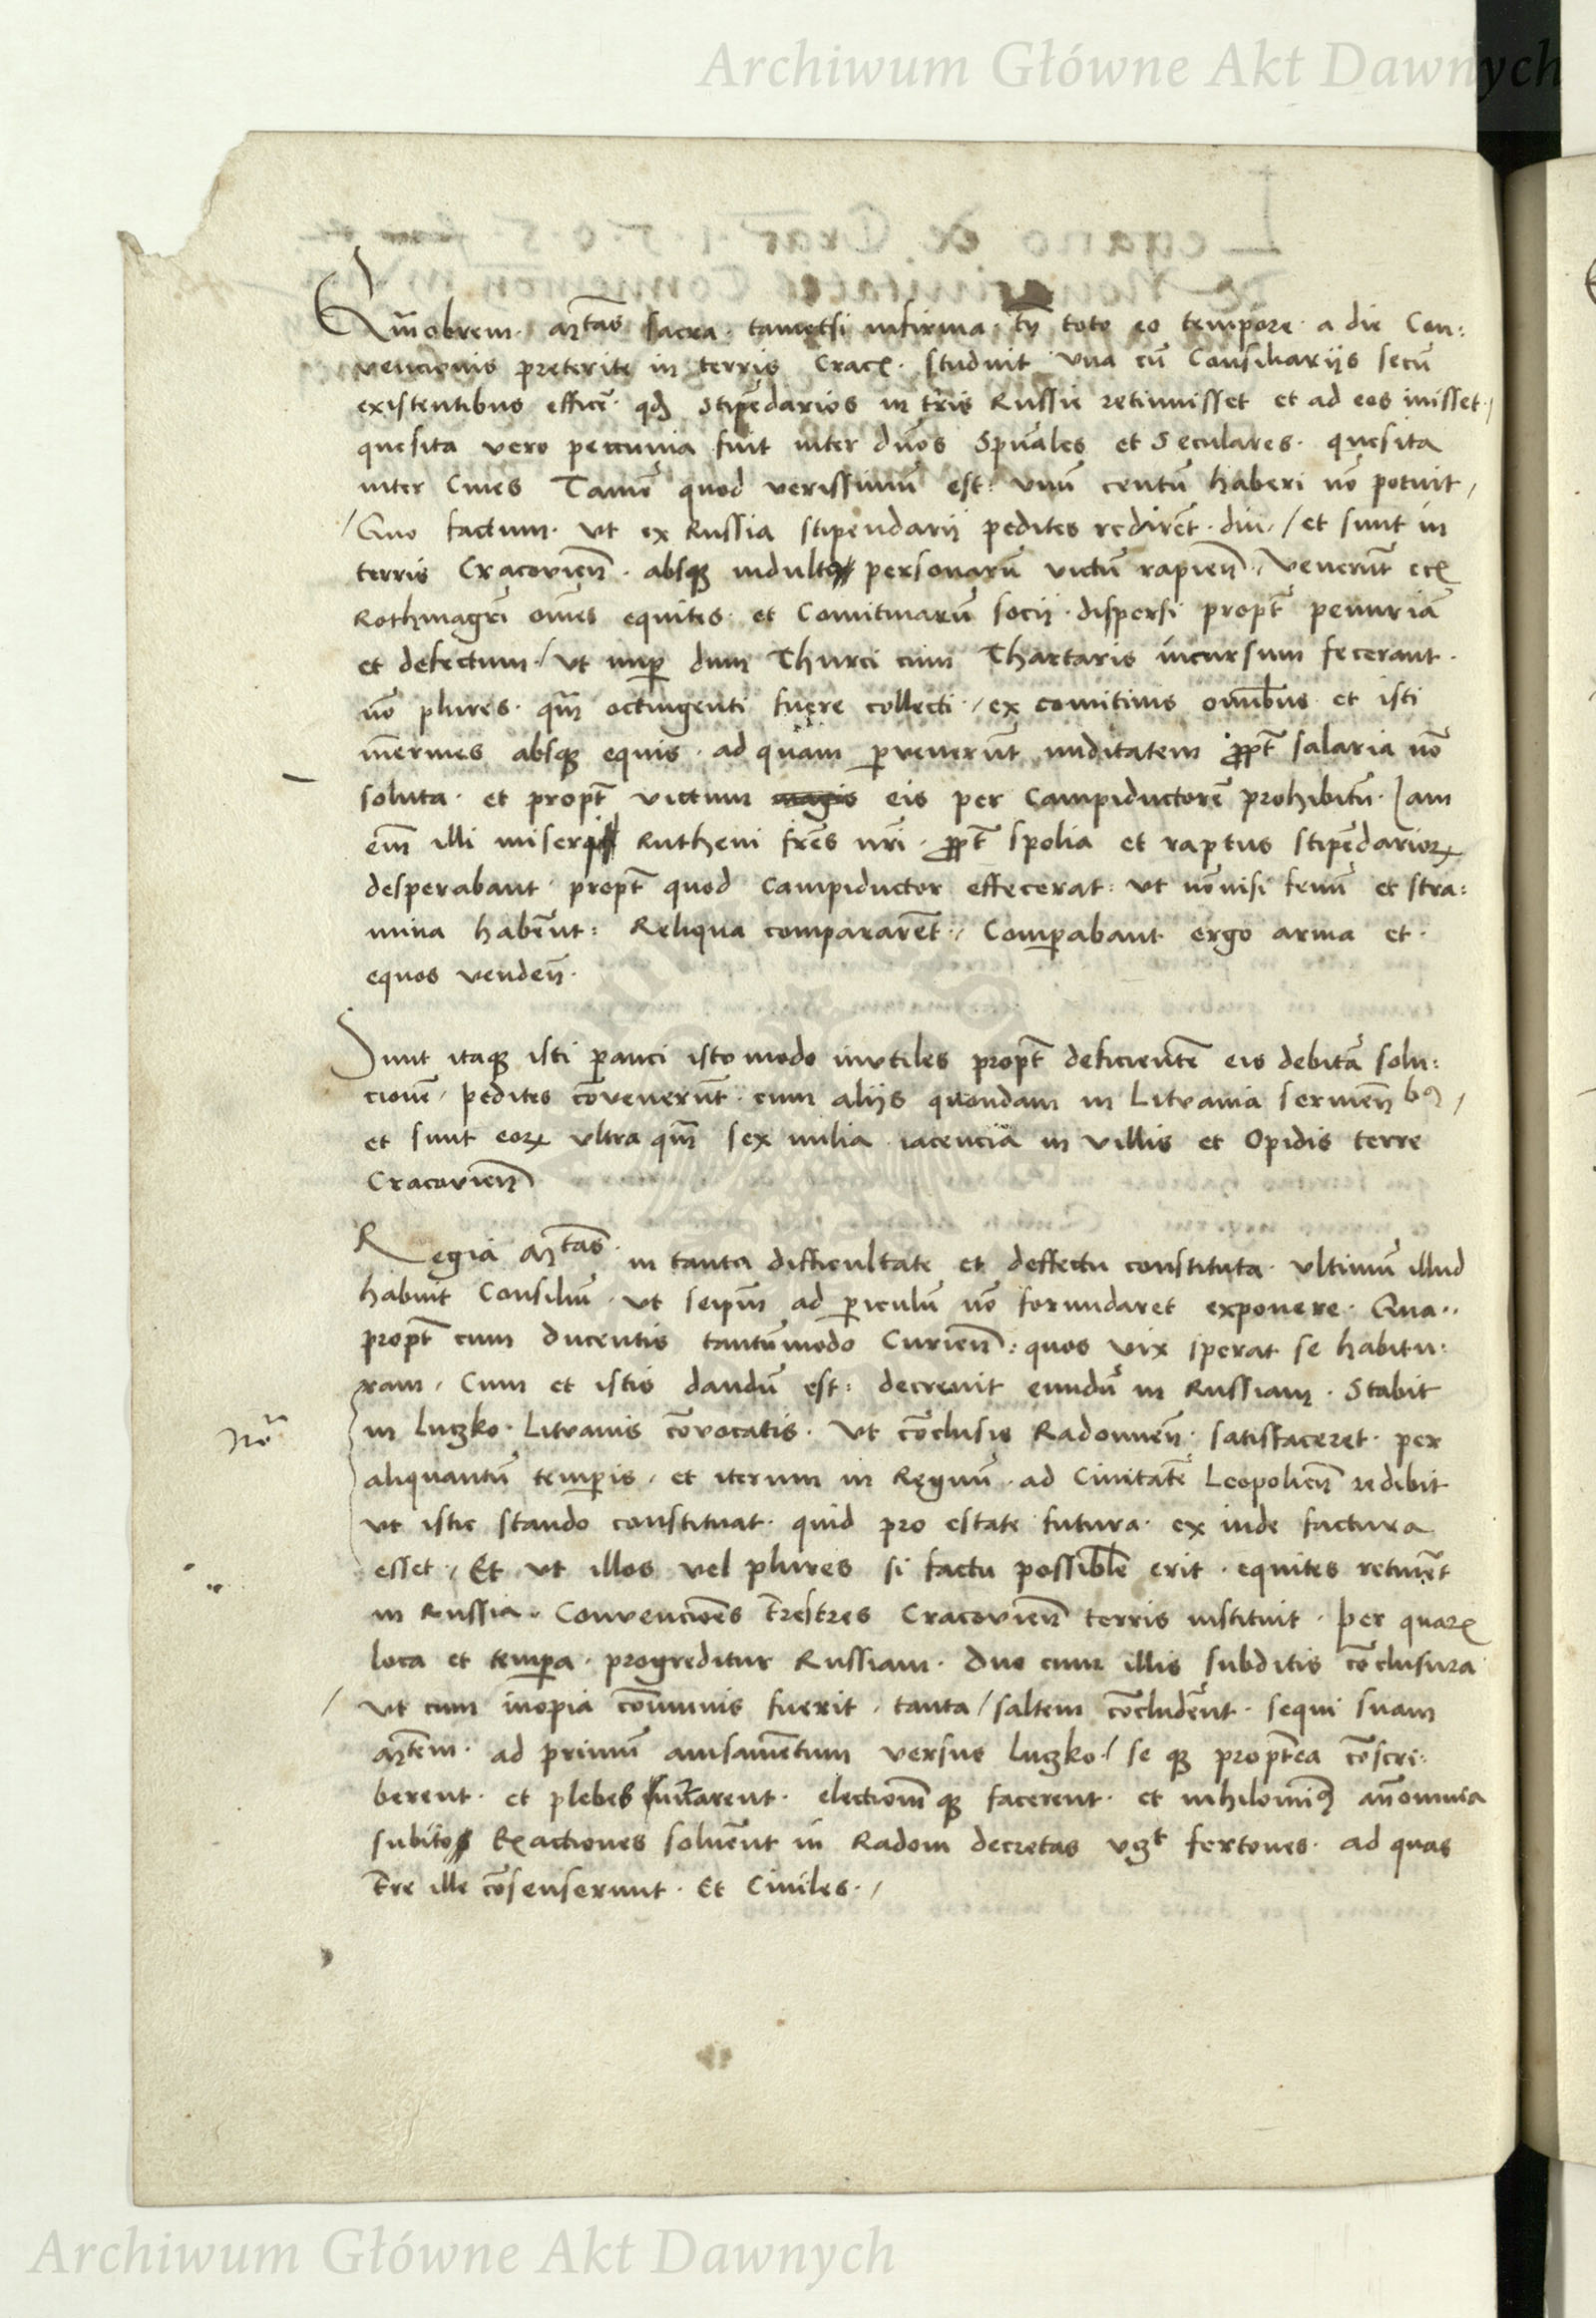 Archiwum Główne Akt Dawnych
Qm̄obrem · Mtas sacra · tametsi infirma · tn̄ toto eo tempore · a die Con:
vencionis preterite in terris Crac · studuit una cū Consiliariis secū
existentibus efficē · qd stipēdarios in tr̄is Russie retinuisset et ad eos misset /
quesita vero peccunia fuit inter dnōs Spūales et Seculares · quesita
inter Cives Tamē quod verissimū est: unū centū haberi nō potuit /
/ Quo factum · ut ex Russia stipendarii pedites redirēt · diu · / et sunt in
terris Cracovien̄ · absq indulto personarū victū rapien̄ · / venerūt ec
Rothmagri om̄es equites · et Comitivarū socii · dispersi propt̄ penuriā
et defectum · / ut nup dum Thurci cum Thartaris incursum fecerant ·
nō plures · qm̄ octingenti fuere collecti · / ex comitivis om̄ibus et isti
inermes absq equis · ad quam pvenerūt nuditatem ppt̄ salaria nō
soluta · et propt̄ victum eis per Campiductorē prohibitū · Iam
em̄ illi miseri Rutheni fr̄es nr̄i · ppt̄ spolia et raptus stipēdarioꝝ
desperabant · propt̄ quod Campiductor effecerat: ut nōnisi fenū et stra:
mina habērut: Reliqua compararēt · / Comparabant ergo arma et ·
equos venden̄ ·
Sunt itaq isti pauci isto modo inutiles propt̄ deficientē eis debitā solu:
cionē · pedites cōvenerūt · cum aliis quondam in Litvania servien̄ bꝰ /
et sunt eoꝝ ultra qm̄ sex milia · iacencia in villis et Opidis terre
Cracovien̄
Regia Mtas · in tanta difficultate et deffectu constituta · ultimū illud
habuit Consiliū · ut seipm̄ ad piculū nō formidaret exponere · Qua:
propt̄ cum ducentis tantūmodo Curien̄ : quos vix sperat se habitu:
ram · Cum et istis dandū est: decrevit eundū in Russiam · Stabit
Nō
in Luczko · Litvanis cōvocatis · ut cōclusis Radomien̄ · satisfaceret · per
aliquantū tempis · et iterum in Regnū · ad Civitatē Leopolien̄ redibit
ut istic stando constituat · quid pro estate futura · ex inde factura
esset · / Et ut illos vel plures si factu possibile erit · equites retinēt
in Russia · Convenciones tr̄estres Cracovien̄ terris instituit · per quaꝝ
loca et tempa · progreditur Russiam · Duo cum illis subditis cōclusura
/ ut cum inopia cōmunis fuerit · tanta / saltem cōcludērut · sequi suam
Mtem · ad primū avisamētum versus Luczko · / se q propt̄ea cōscri:
berent · et plebes luicarent · electionem q facerent · et nihilominꝰ an̄ omnia
subito Exactiones solvērut in Radom decretas vꝫt fertones · ad quas
t̄re ille cōsenserunt · Et Civiles · /
Archiwum Główne Akt Dawnych